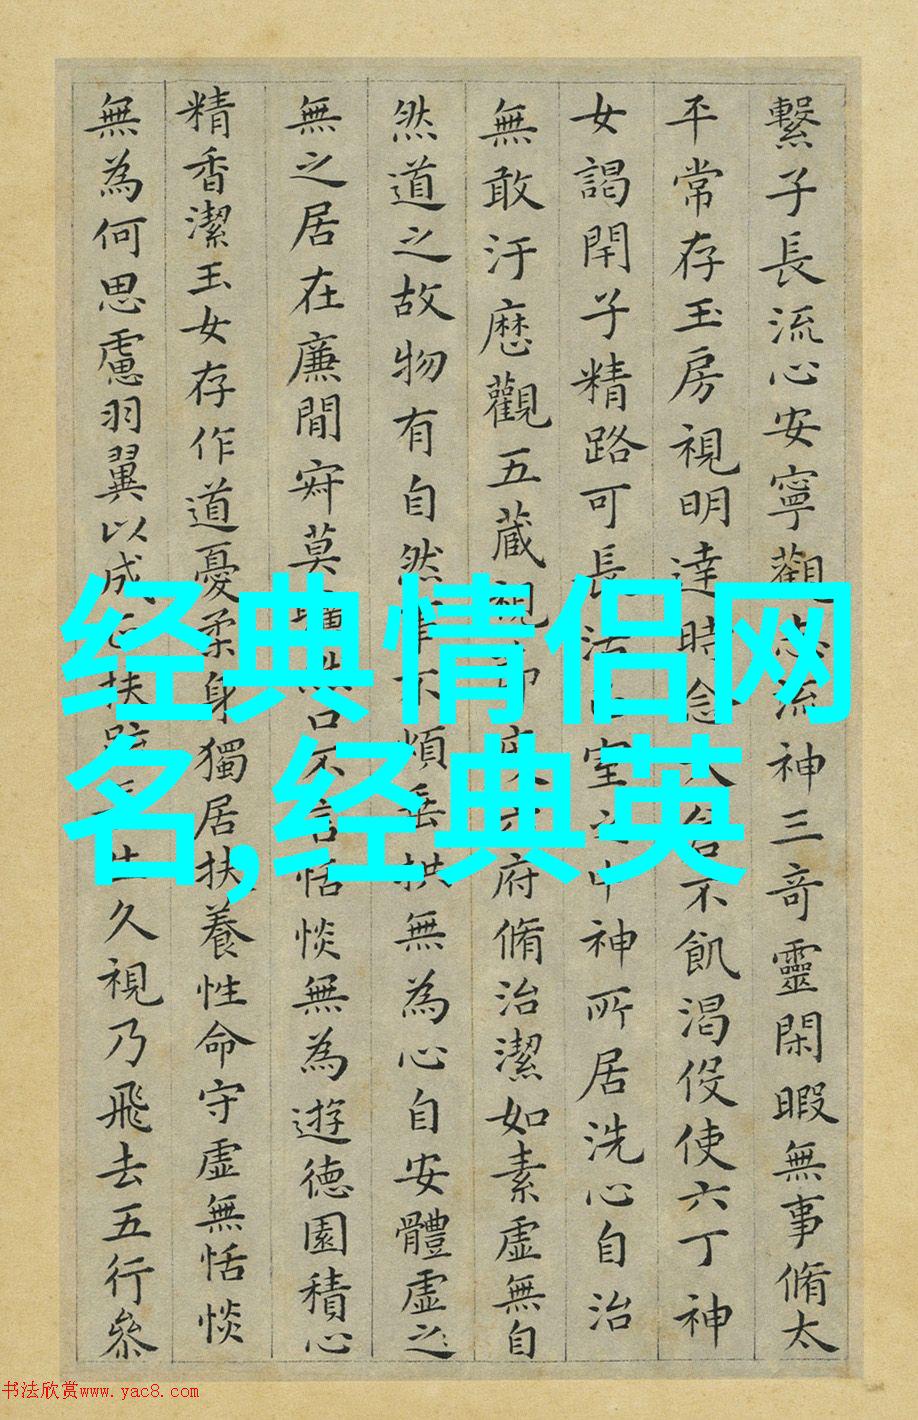 繫子長流心安寧觀志流神三竒靈閑暇無事脩太
平常存玉房視明達時念大倉不飢渴伇使六丁神
女謁閇子精路可長活正室之中神所居洗心自治
無敢汙歷觀五藏視節度六府脩治潔如素虛無自
然道之故物有自然事不煩垂拱無為心自安體虛之
無之居在廉間㝛莫曠然口不言恬惔無為遊德園積心
精香潔玉女存作道憂柔身獨居扶養性命守虛無恬惔
無為何思慮羽翼以成正扶疏長生久視乃飛去五行叅
经典情侣网
名,经典英
书法欣赏www.yac8.com